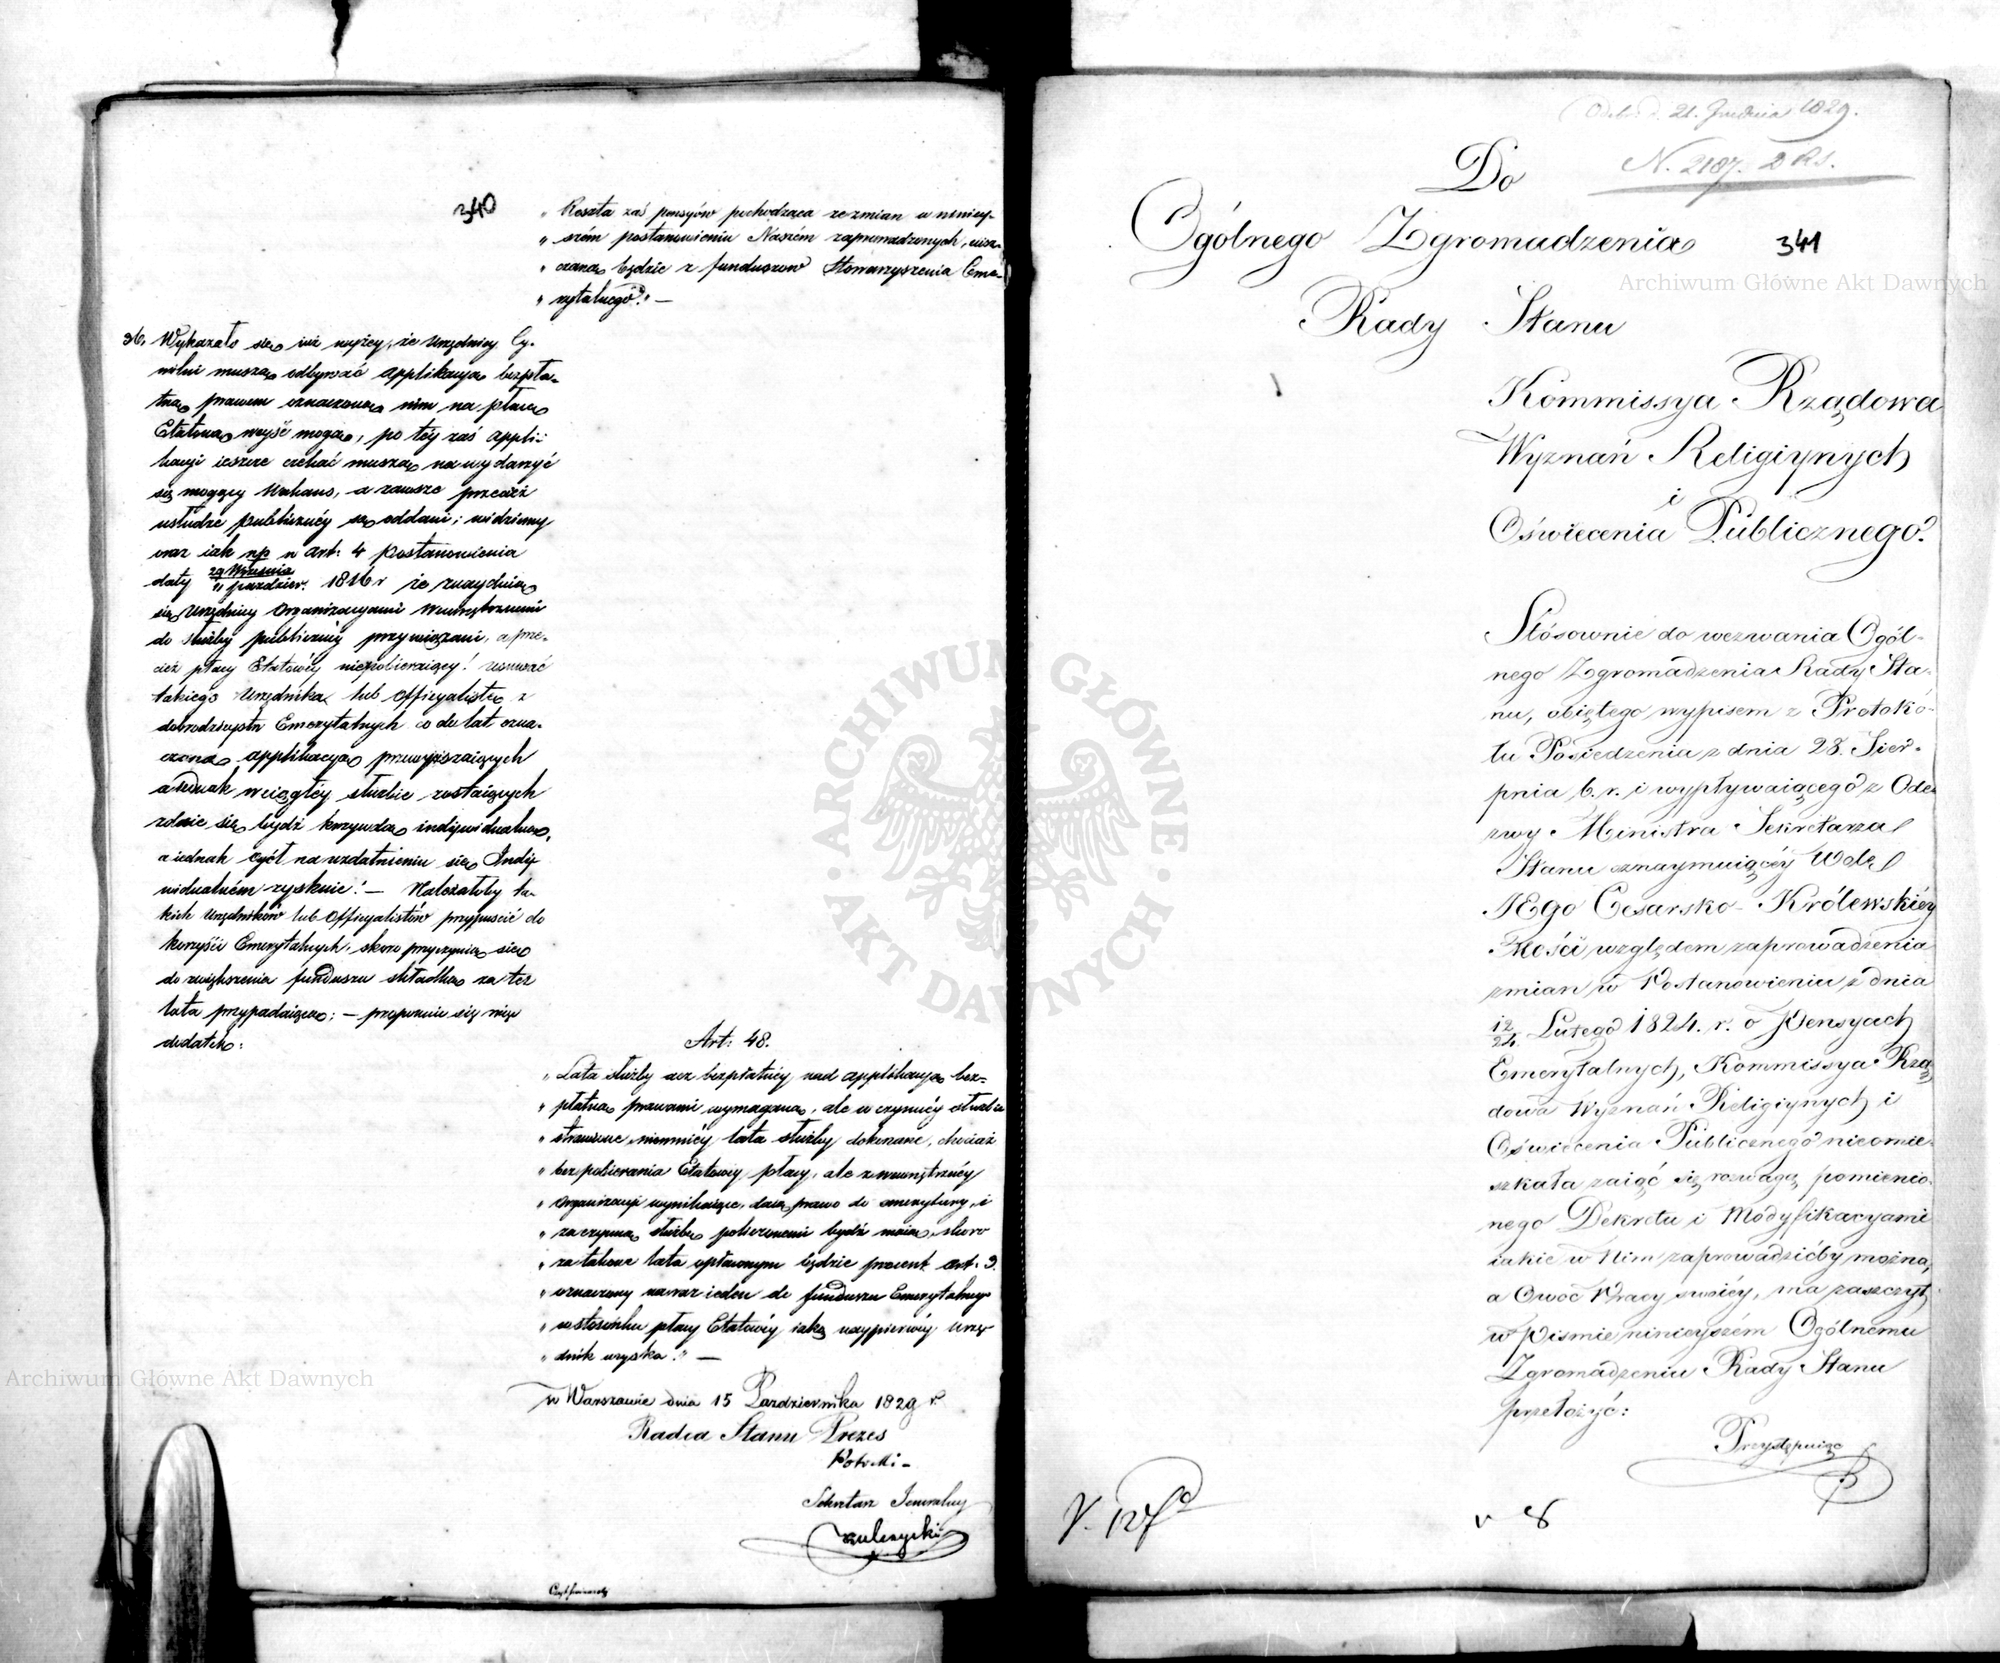 340
„ Reszta zaś pensyów pochodząca ze zmian w niniey-
„ szém postanowieniu Naszém zaprowadzonych, uisz-
„ czana będzie z funduszów Stowarzyszenia Eme-
„ rytalnego." —
36. Wykazało się iuż wyżey, że Urzędnicy Cy-
wilni muszą odbywać applikacyą bezpła-
tną prawem oznaczoną nim na płacę
Etatową weyść mogą, po téy zaś appli-
kacyi ieszcze czekać muszą na wydarzyć
się mogący Wakans, a zawsze przecież
usłudze publicznéy są oddani; widziemy
oraz iak np w art: 4 Postanowienia
daty 29 Września / 11 Paździer. 1816 r że znayduią
się Urzędnicy Organizacyami Wewnętrznemi
do służby publicznéy przywiązani, a prze-
cież płacy Etatowéy niepobieraiący! usuwać
takiego Urzędnika lub Officyalistę z
dobrodzieystw Emerytalnych co do lat ozna-
czoną applikacyą przewyższaiących
a iednak w ciągłéy służbie zostaiących
zdaie się bydź krzywdą indywidualną,
a iednak ogół na uzdatnieniu się Indy-
widualném zyskuie! — Należałoby ta-
kich Urzędników lub Officyalistów przypuścić do
korzyści Emerytalnych, skoro przyczynią się
do zwiększenia funduszu składką za też
lata przypadaiącą; — proponuie się więc
dodatek:
Art: 48.
„ Lata służby acz bezpłatnéy nad applikacyą bez-
„ płatną prawami wymaganą, ale w czynnéy służbie
„ strawione, niemniéy lata służby dokonane, chociaż
„ bez pobierania Etatowéy płacy, ale z wewnętrznéy
„ Organizacyi wynikaiące, daią prawo do emerytury, i
„ za czynną służbę policzonemi bydź maią, skoro
„ za takowe lata opłaconym będzie procent art: 9.
„ oznaczony na raz ieden do funduszu Emerytalnego
„ w stosunku płacy Etatowéy iaką naypierwéy Urzę-
„ dnik uzyska." —
w Warszawie dnia 15 Pazdziernika 1829 r.
Radca Stanu Prezes
Sekretarz Jeneralny
Odebr: d. 21. Grudnia 1829.
N. 2187. D RS.
341
Do
Ogólnego Zgromadzenia
Rady Stanu
Kommissya Rządowa
Wyznań Religiynych
i
Oświecenia Publicznego.
Stósownie do wezwania Ogól-
nego Zgromadzenia Rady Sta-
nu, obiętego wypisem z Protokó-
łu Posiedzenia z dnia 28. Sier-
pnia b. r. i wypływaiącego z Ode-
zwy Ministra Sekretarza
Stanu oznaymuiącéy Wolę
JEgo Cesarsko-Królewskiéy
Mości względem zaprowadzenia
zmian w Postanowieniu z dnia
12/24 Lutego 1824. r. o Pensyach
Emerytalnych, Kommissya Rzą-
dowa Wyznań Religiynych i
Oświecenia Publicznego nieomie-
szkała zaiąć się rozwagą pomienio-
nego Dekretu i Modyfikacyami
iakie w Nim zaprowadzićby można,
a Owoc Pracy swoiéy, ma zaszczyt
w Piśmie ninieyszém Ogólnemu
Zgromadzeniu Rady Stanu
przełożyć:
Przystępuiąc
Archiwum Główne Akt Dawnych
Archiwum Główne Akt Dawnych
· ARCHIWUM GŁÓWNE · AKT DAWNYCH